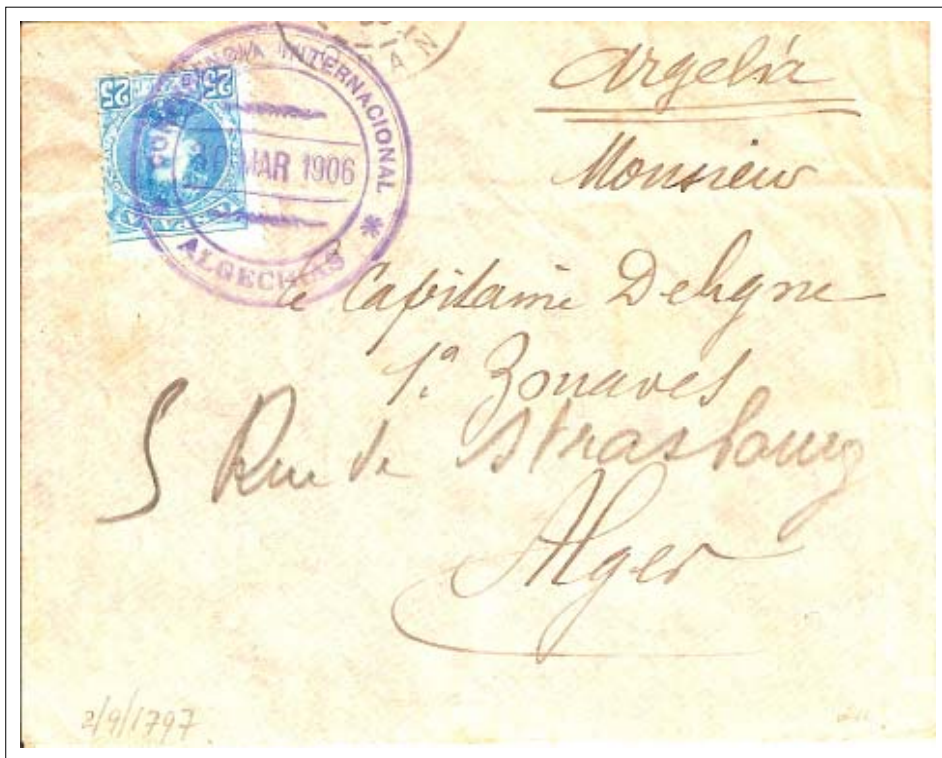 INTERNACIONAL
MAR 1906
ALGECIRAS
25 25
Argelia
Monsieur
le Capitaine Deligne
1º Zouaves
5 Rue de Strasbourg
Alger
2/9/1797